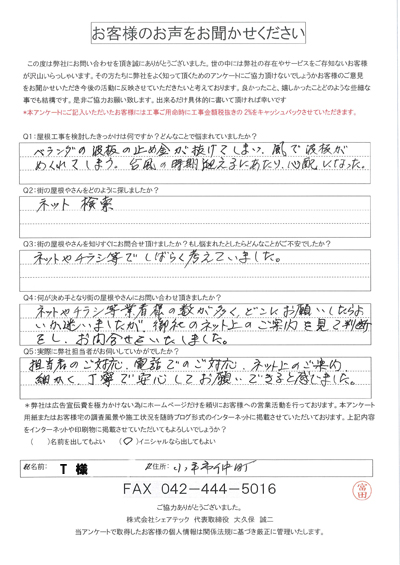 お客様のお声をお聞かせください
この度は弊社にお問い合わせを頂き誠にありがとうございました。世の中には弊社の存在やサービスをご存知ないお客様
が沢山いらっしゃいます。その方たちに弊社をよく知って頂くためのアンケートにご協力頂けないでしょうかお客様のご意見
をお聞かせいただき今後の活動に反映させていただきたいと考えております。良かったこと、嬉しかったことどのような些細な
事でも結構です。是非ご協力お願い致します。出来るだけ具体的に書いて頂ければ幸いです
*本アンケートにご記入いただいたお客様には工事ご用命時に工事金額税抜きの2%をキャッシュバックさせていただきます。
Q1:屋根工事を検討したきっかけは何ですか?どんなことで悩まれていましたか?
ベランダの波板の止め金が抜けてしまい、風で波板が
めくれてしまう。台風の時期迎えるにあたり、心配になった。
Q2:街の屋根やさんをどのように探しましたか?
ネット検索
Q3:街の屋根やさんを知りすぐにお問合せ頂けましたか?もし悩まれたとしたらどんなことがご不安でしたか?
ネットやチラシ等でしばらく考えていました。
Q4:何が決め手となり街の屋根やさんにお問い合わせ頂きましたか?
ネットやチラシ等業者様の数が多く、どこにお願いしたらよ
いか迷いましたが、御社のネット上のご案内を見て判断
をし、お問合せをいたしました。
Q5:実際に弊社担当者がお伺いしていかがでしたか?
担当者のご対応、電話でのご対応、ネット上のご案内
細かく、丁寧で安心してお願いできると感じました。
*弊社は広告宣伝費を極力かけない為にホームページだけを頼りにお客様への営業活動を行っております。本アンケート
用紙またはお客様宅の調査風景や施工状況を随時ブログ形式のインターネットに掲載させていただいております。上記内容
をインターネットや印刷物に掲載させていただいてもよろしいでしょうか?
( )名前を出してもよい (○)イニシャルなら出してもよい
お名前: T 様 ご住所: 小平市仲町
FAX 042-444-5016
富田
ご協力ありがとうございました。
株式会社シェアテック 代表取締役 大久保 誠二
当アンケートで取得したお客様の個人情報は関係法規に基づき厳正に管理いたします。